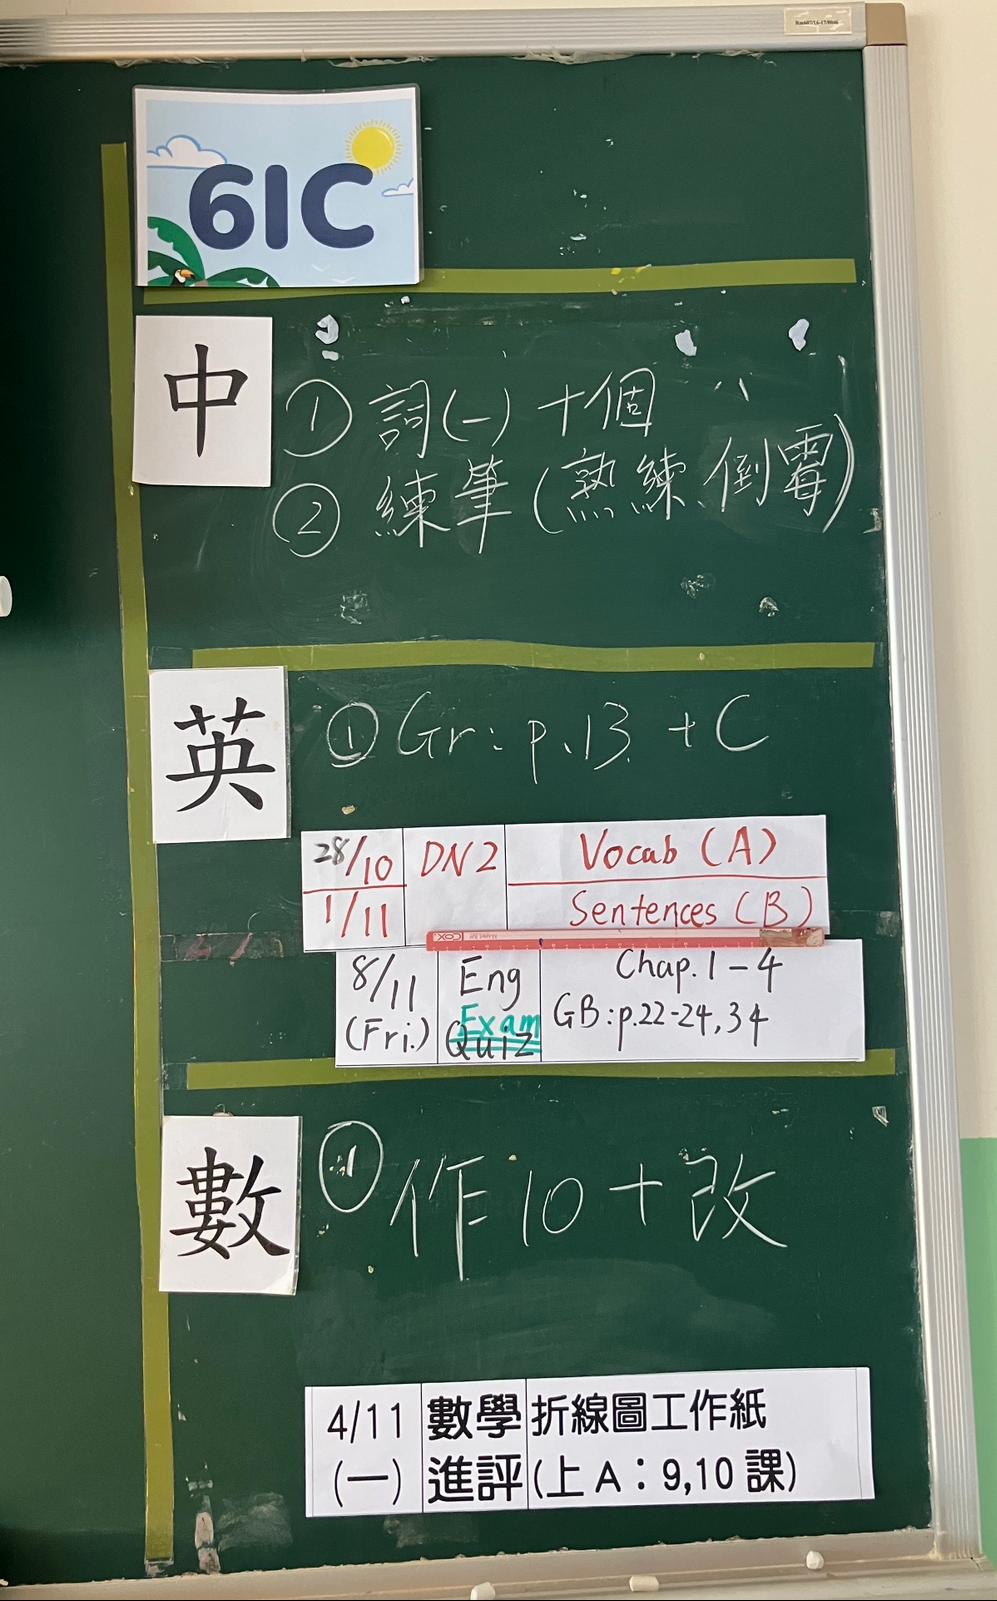 61C
中
① 詞(一) 十個
② 練筆(熟練、倒霉)
英
① Gr: p.13 + C
28/10 DN2 Vocab (A)
1/11 Sentences (B)
8/11 Eng Chap.1-4
(Fri.) Exam Quiz GB:p.22-24,34
數
① 作10+改
4/11 數學 折線圖工作紙
(一) 進評 (上A:9,10課)